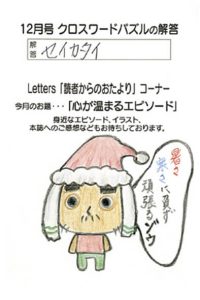 12月号 クロスワードパズルの解答
解答 セイカタイ
Letters「読者からのおたより」コーナー
今月のお題・・・「心が温まるエピソード」
身近なエピソード、イラスト、
本誌へのご感想などもお待ちしております。
暑さ
寒さに負けず
頑張るゾウ